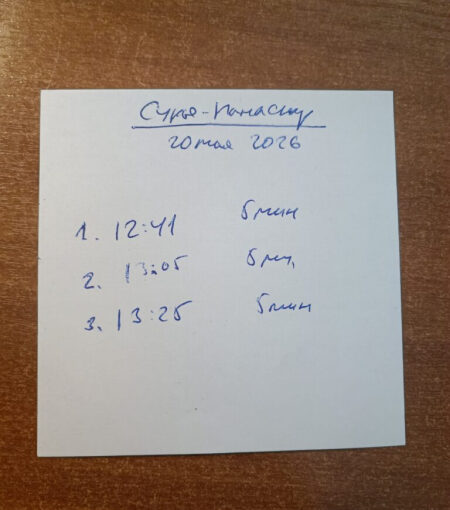 Сурья-Намаскар
20 мая 2026
1. 12:41 5 мин
2. 13:05 5 мин
3. 13:25 5 мин